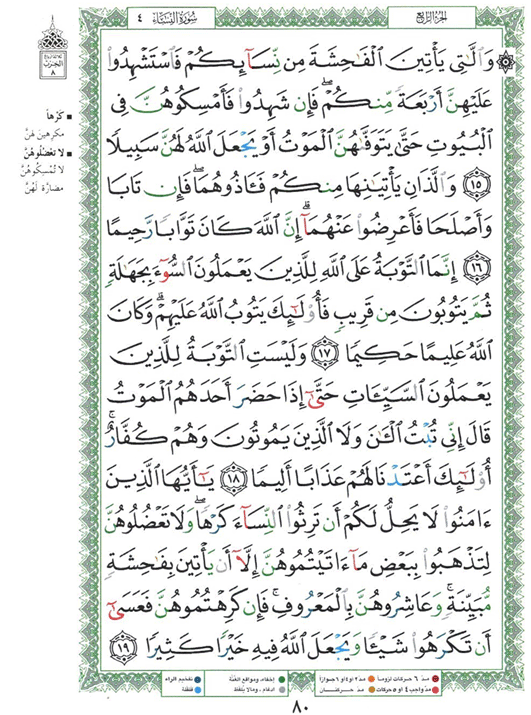 الجزء الرابع
سورة النساء ٤
وَٱلَّٰتِى يَأْتِينَ ٱلْفَٰحِشَةَ مِن نِّسَآئِكُمْ فَٱسْتَشْهِدُوا۟
عَلَيْهِنَّ أَرْبَعَةً مِّنكُمْ ۖ فَإِن شَهِدُوا۟ فَأَمْسِكُوهُنَّ فِى
ٱلْبُيُوتِ حَتَّىٰ يَتَوَفَّىٰهُنَّ ٱلْمَوْتُ أَوْ يَجْعَلَ ٱللَّهُ لَهُنَّ سَبِيلًا
١٥ وَٱلَّذَانِ يَأْتِيَٰنِهَا مِنكُمْ فَـَٔاذُوهُمَا ۖ فَإِن تَابَا
وَأَصْلَحَا فَأَعْرِضُوا۟ عَنْهُمَآ ۗ إِنَّ ٱللَّهَ كَانَ تَوَّابًا رَّحِيمًا
١٦ إِنَّمَا ٱلتَّوْبَةُ عَلَى ٱللَّهِ لِلَّذِينَ يَعْمَلُونَ ٱلسُّوٓءَ بِجَهَٰلَةٍ
ثُمَّ يَتُوبُونَ مِن قَرِيبٍ فَأُو۟لَٰٓئِكَ يَتُوبُ ٱللَّهُ عَلَيْهِمْ ۗ وَكَانَ
ٱللَّهُ عَلِيمًا حَكِيمًا ١٧ وَلَيْسَتِ ٱلتَّوْبَةُ لِلَّذِينَ
يَعْمَلُونَ ٱلسَّيِّـَٔاتِ حَتَّىٰٓ إِذَا حَضَرَ أَحَدَهُمُ ٱلْمَوْتُ
قَالَ إِنِّى تُبْتُ ٱلْـَٰٔنَ وَلَا ٱلَّذِينَ يَمُوتُونَ وَهُمْ كُفَّارٌ ۚ
أُو۟لَٰٓئِكَ أَعْتَدْنَا لَهُمْ عَذَابًا أَلِيمًا ١٨ يَٰٓأَيُّهَا ٱلَّذِينَ
ءَامَنُوا۟ لَا يَحِلُّ لَكُمْ أَن تَرِثُوا۟ ٱلنِّسَآءَ كَرْهًا ۖ وَلَا تَعْضُلُوهُنَّ
لِتَذْهَبُوا۟ بِبَعْضِ مَآ ءَاتَيْتُمُوهُنَّ إِلَّآ أَن يَأْتِينَ بِفَٰحِشَةٍ
مُّبَيِّنَةٍ ۚ وَعَاشِرُوهُنَّ بِٱلْمَعْرُوفِ ۚ فَإِن كَرِهْتُمُوهُنَّ فَعَسَىٰٓ
أَن تَكْرَهُوا۟ شَيْـًٔا وَيَجْعَلَ ٱللَّهُ فِيهِ خَيْرًا كَثِيرًا ١٩
الحزب
٨
كَرْهاً
مكرهين لهنّ
لا تَعْضُلُوهُنَّ
لا تُمْسِكُوهُنَّ
مضارّة لهنّ
مدّ ٦ حركات لزوماً
مدّ ٢ أو ٤ أو ٦ جوازاً
إخفاء، ومواقع الغنّة
تفخيم الراء
مدّ واجب ٤ أو ٥ حركات
مدّ حركتان
إدغام، وما لا يُلفظ
قلقلة
٨٠